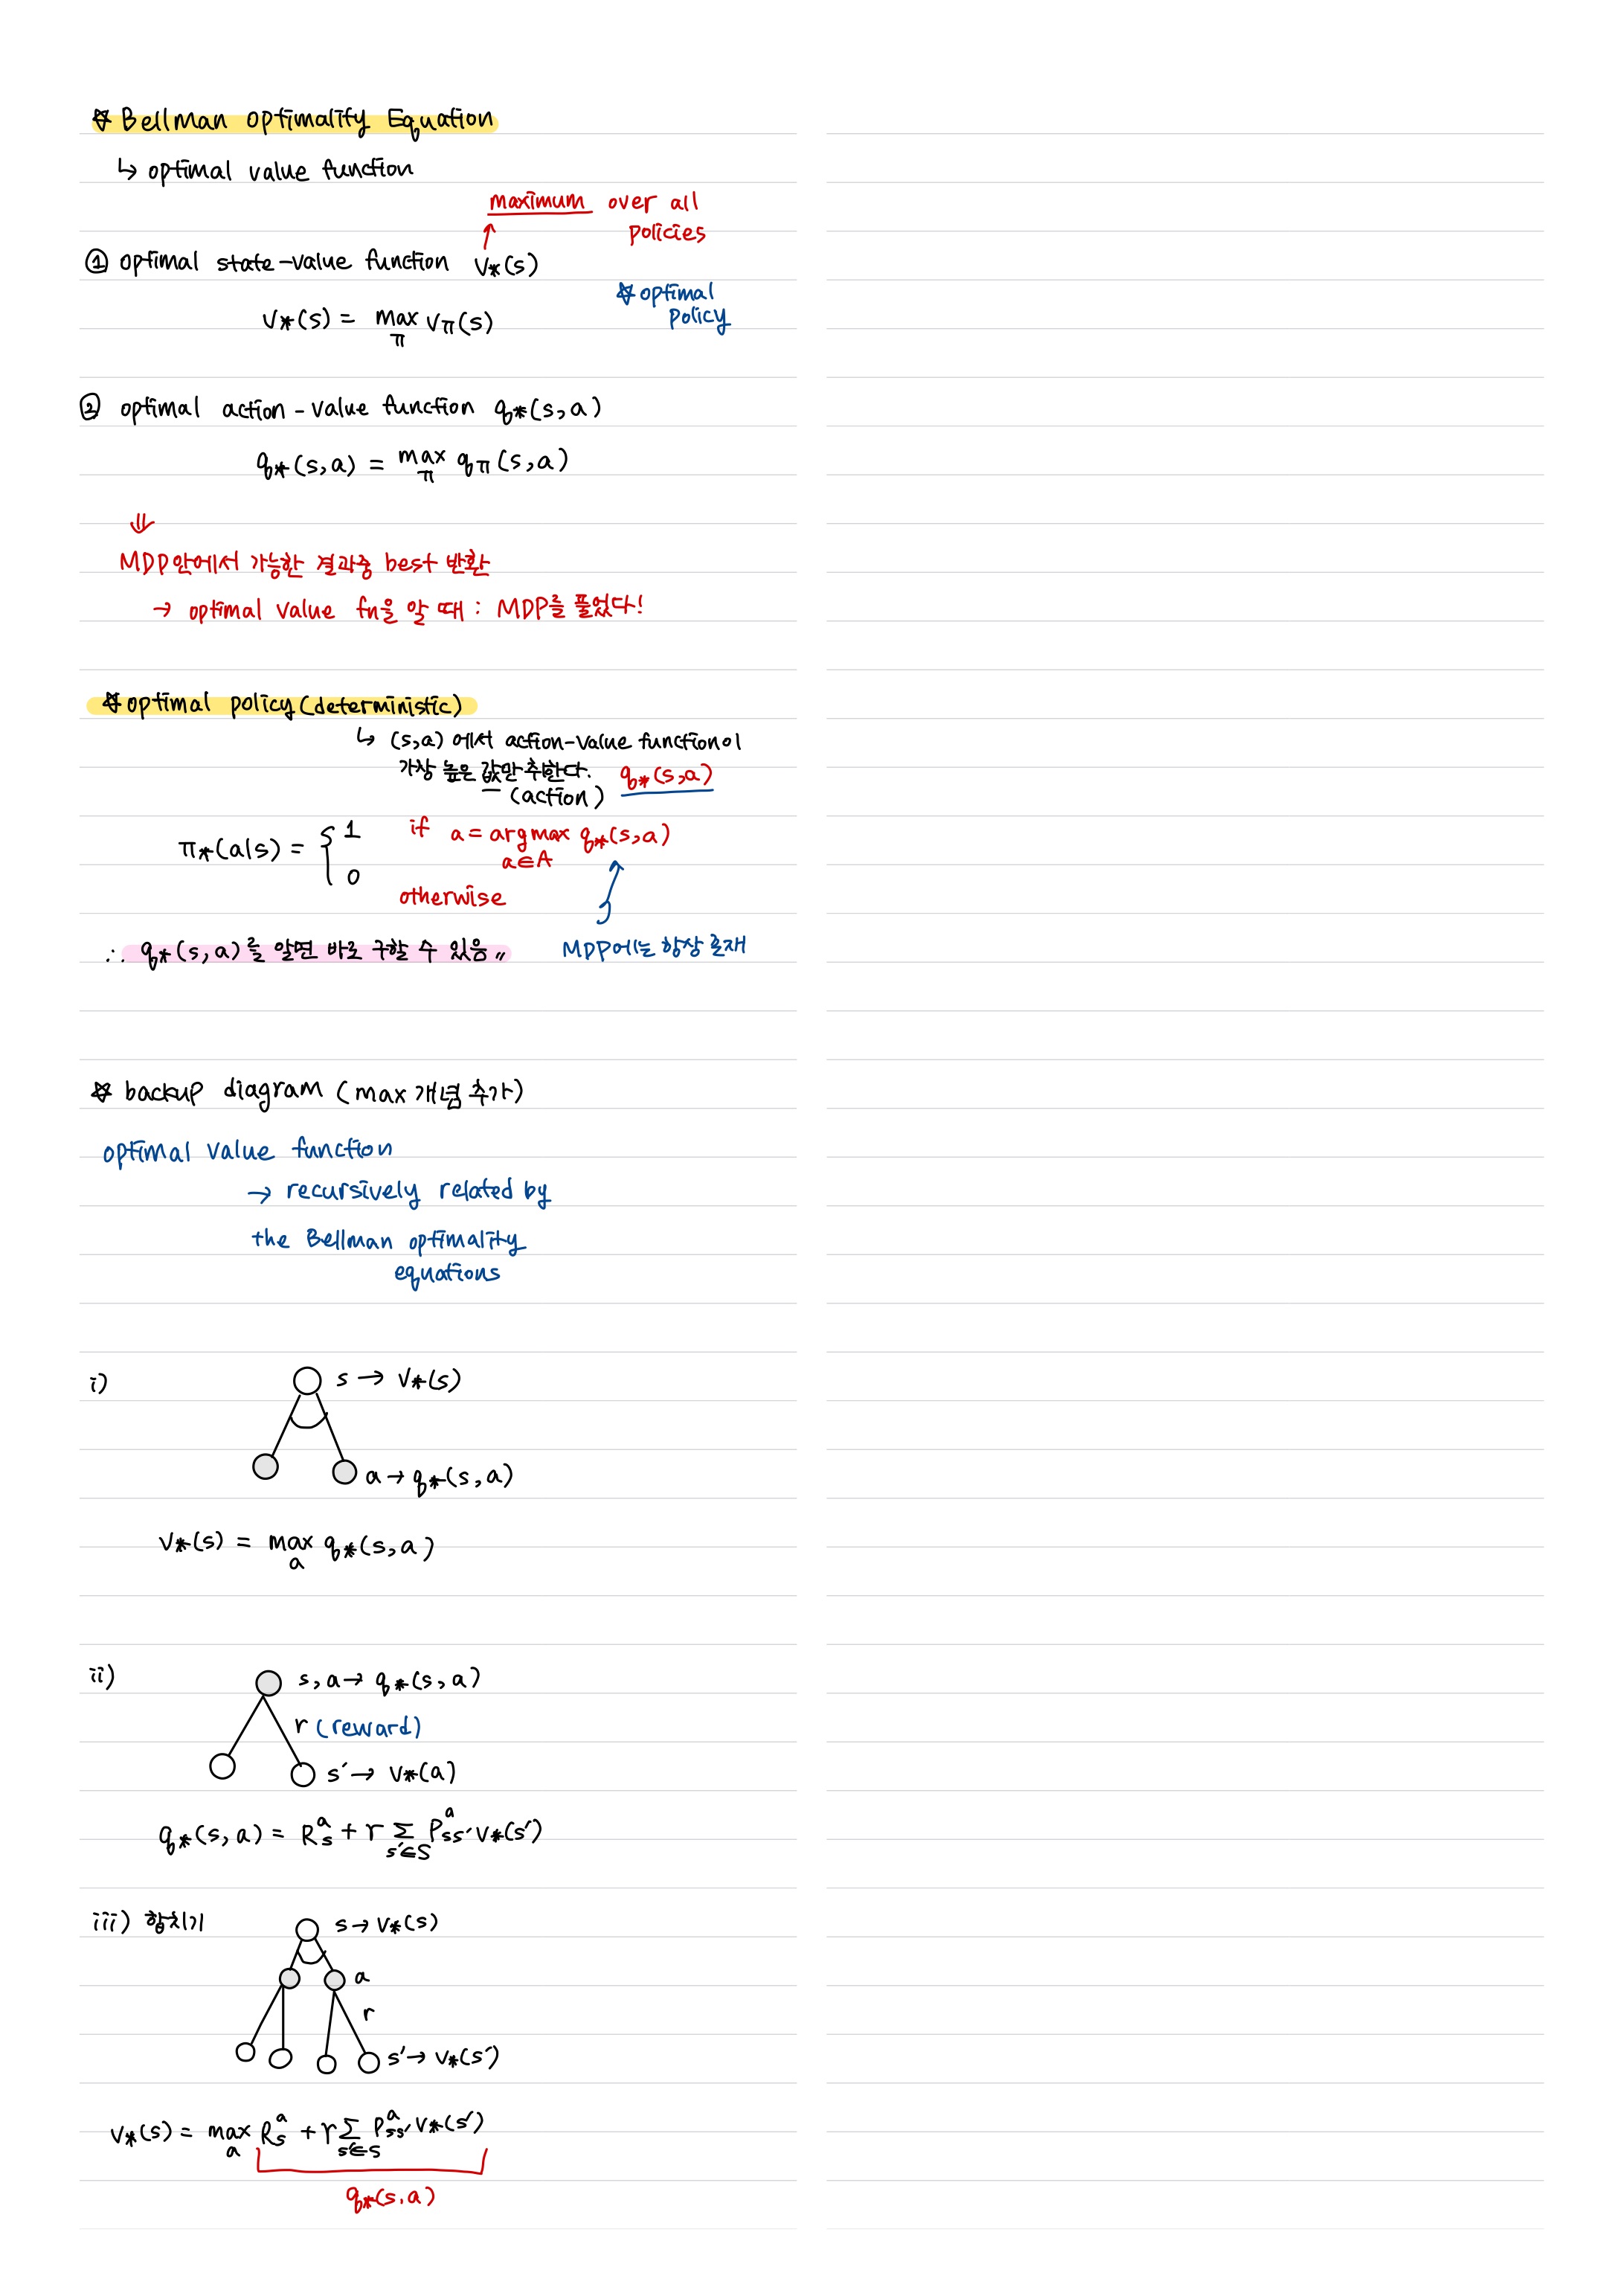 ☆ Bellman optimality Equation
↳ optimal value function
maximum over all
policies
① optimal state-value function v*(s)
☆ optimal
policy
v*(s) = max v_π(s)
π
② optimal action-value function q*(s,a)
q*(s,a) = max q_π(s,a)
π
⇓
MDP안에서 가능한 결과중 best 반환
→ optimal value fn을 알 때 : MDP를 풀었다!
☆ optimal policy (deterministic)
↳ (s,a) 에서 action-value function이
가장 높은 값만 취한다. q*(s,a)
(action)
π*(a|s) = { 1 if a = argmax q*(s,a)
a∈A
0 otherwise
∴ q*(s,a)를 알면 바로 구할 수 있음〃 MDP에는 항상 존재
☆ backup diagram (max 개념 추가)
optimal value function
→ recursively related by
the Bellman optimality
equations
i) s → v*(s)
a → q*(s,a)
v*(s) = max q*(s,a)
a
ii) s,a → q*(s,a)
r (reward)
s′ → v*(a)
q*(s,a) = R_s^a + r Σ P_ss′^a v*(s′)
s′∈S
iii) 합치기 s → v*(s)
a
r
s′ → v*(s′)
v*(s) = max R_s^a + r Σ P_ss′^a v*(s′)
a s′∈S
q*(s,a)